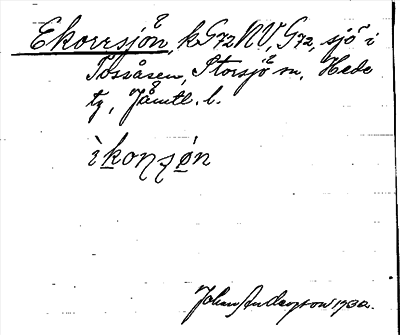 Ekorrsjön, kG72NV, G72, sjö i
Tossåsen, Storsjö sn, Hede
tg, Jämtl. l.
ìkonʂøn
Johan Andersson 1930.